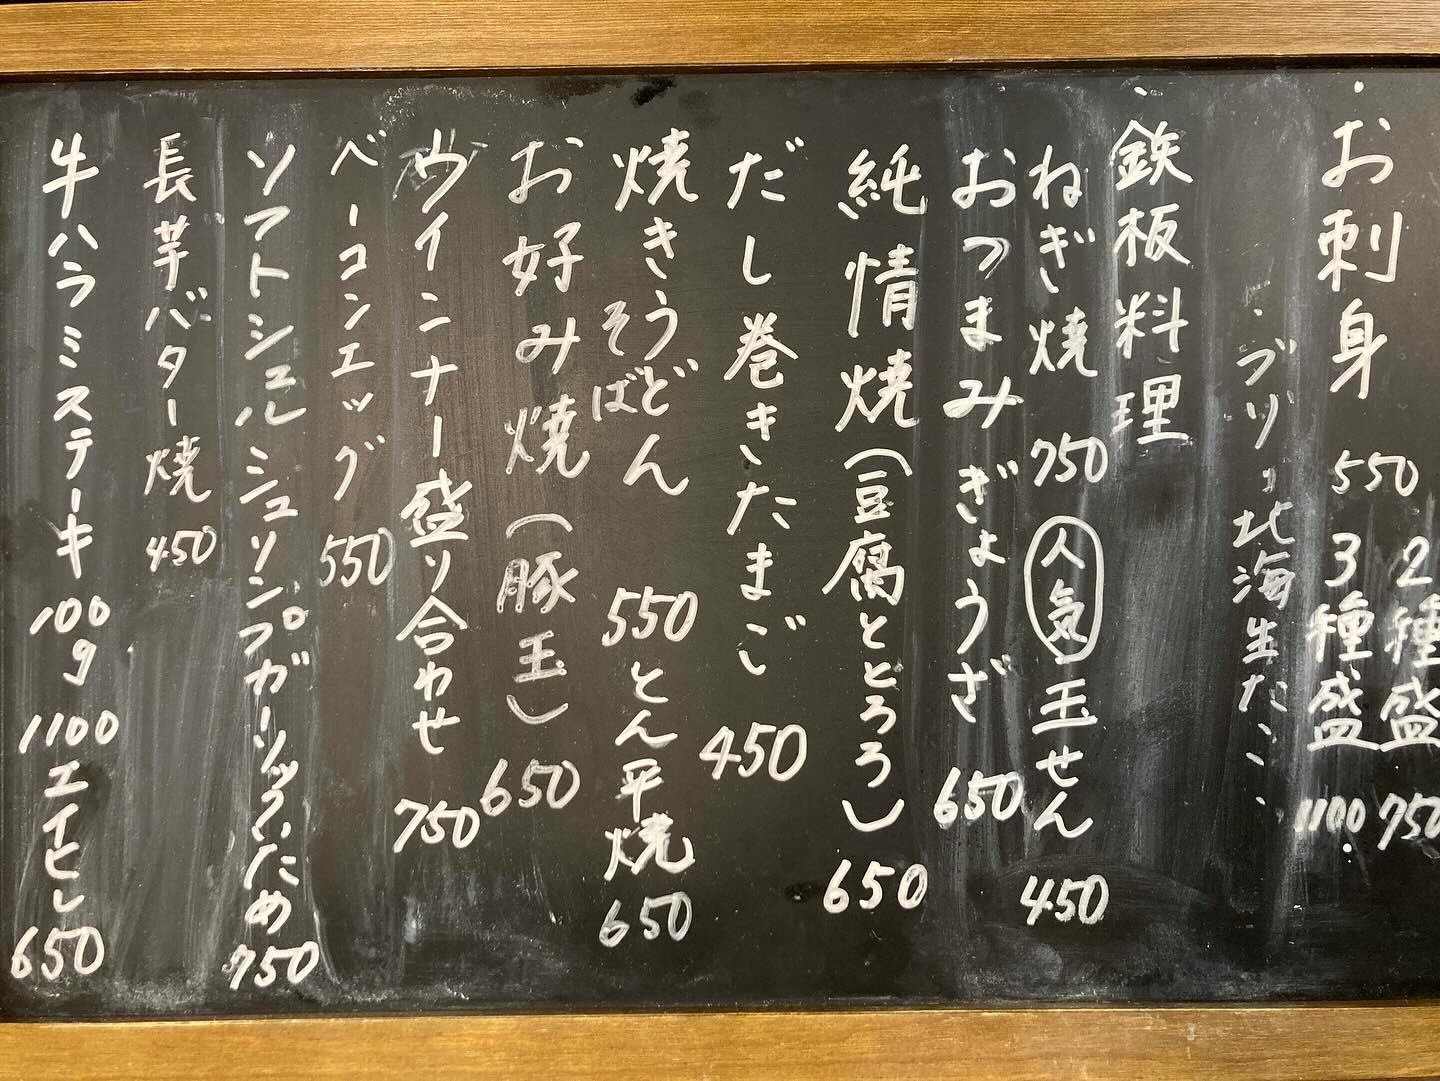 お刺身 550 2種盛 750
3種盛 1100
・ブリ・北海生たこ・
鉄板料理
ねぎ焼 750 人気 玉せん 450
おつまみぎょうざ 650
純情焼(豆腐ととろろ) 650
だし巻きたまご 450
焼きうどん そば 550 とん平焼 650
お好み焼(豚玉) 650
ウインナー盛り合わせ 750
ベーコンエッグ 550
ソフトシェルシュリンプガーリックいため 750
長芋バター焼 450
牛ハラミステーキ 100g 1100 エイヒレ 650